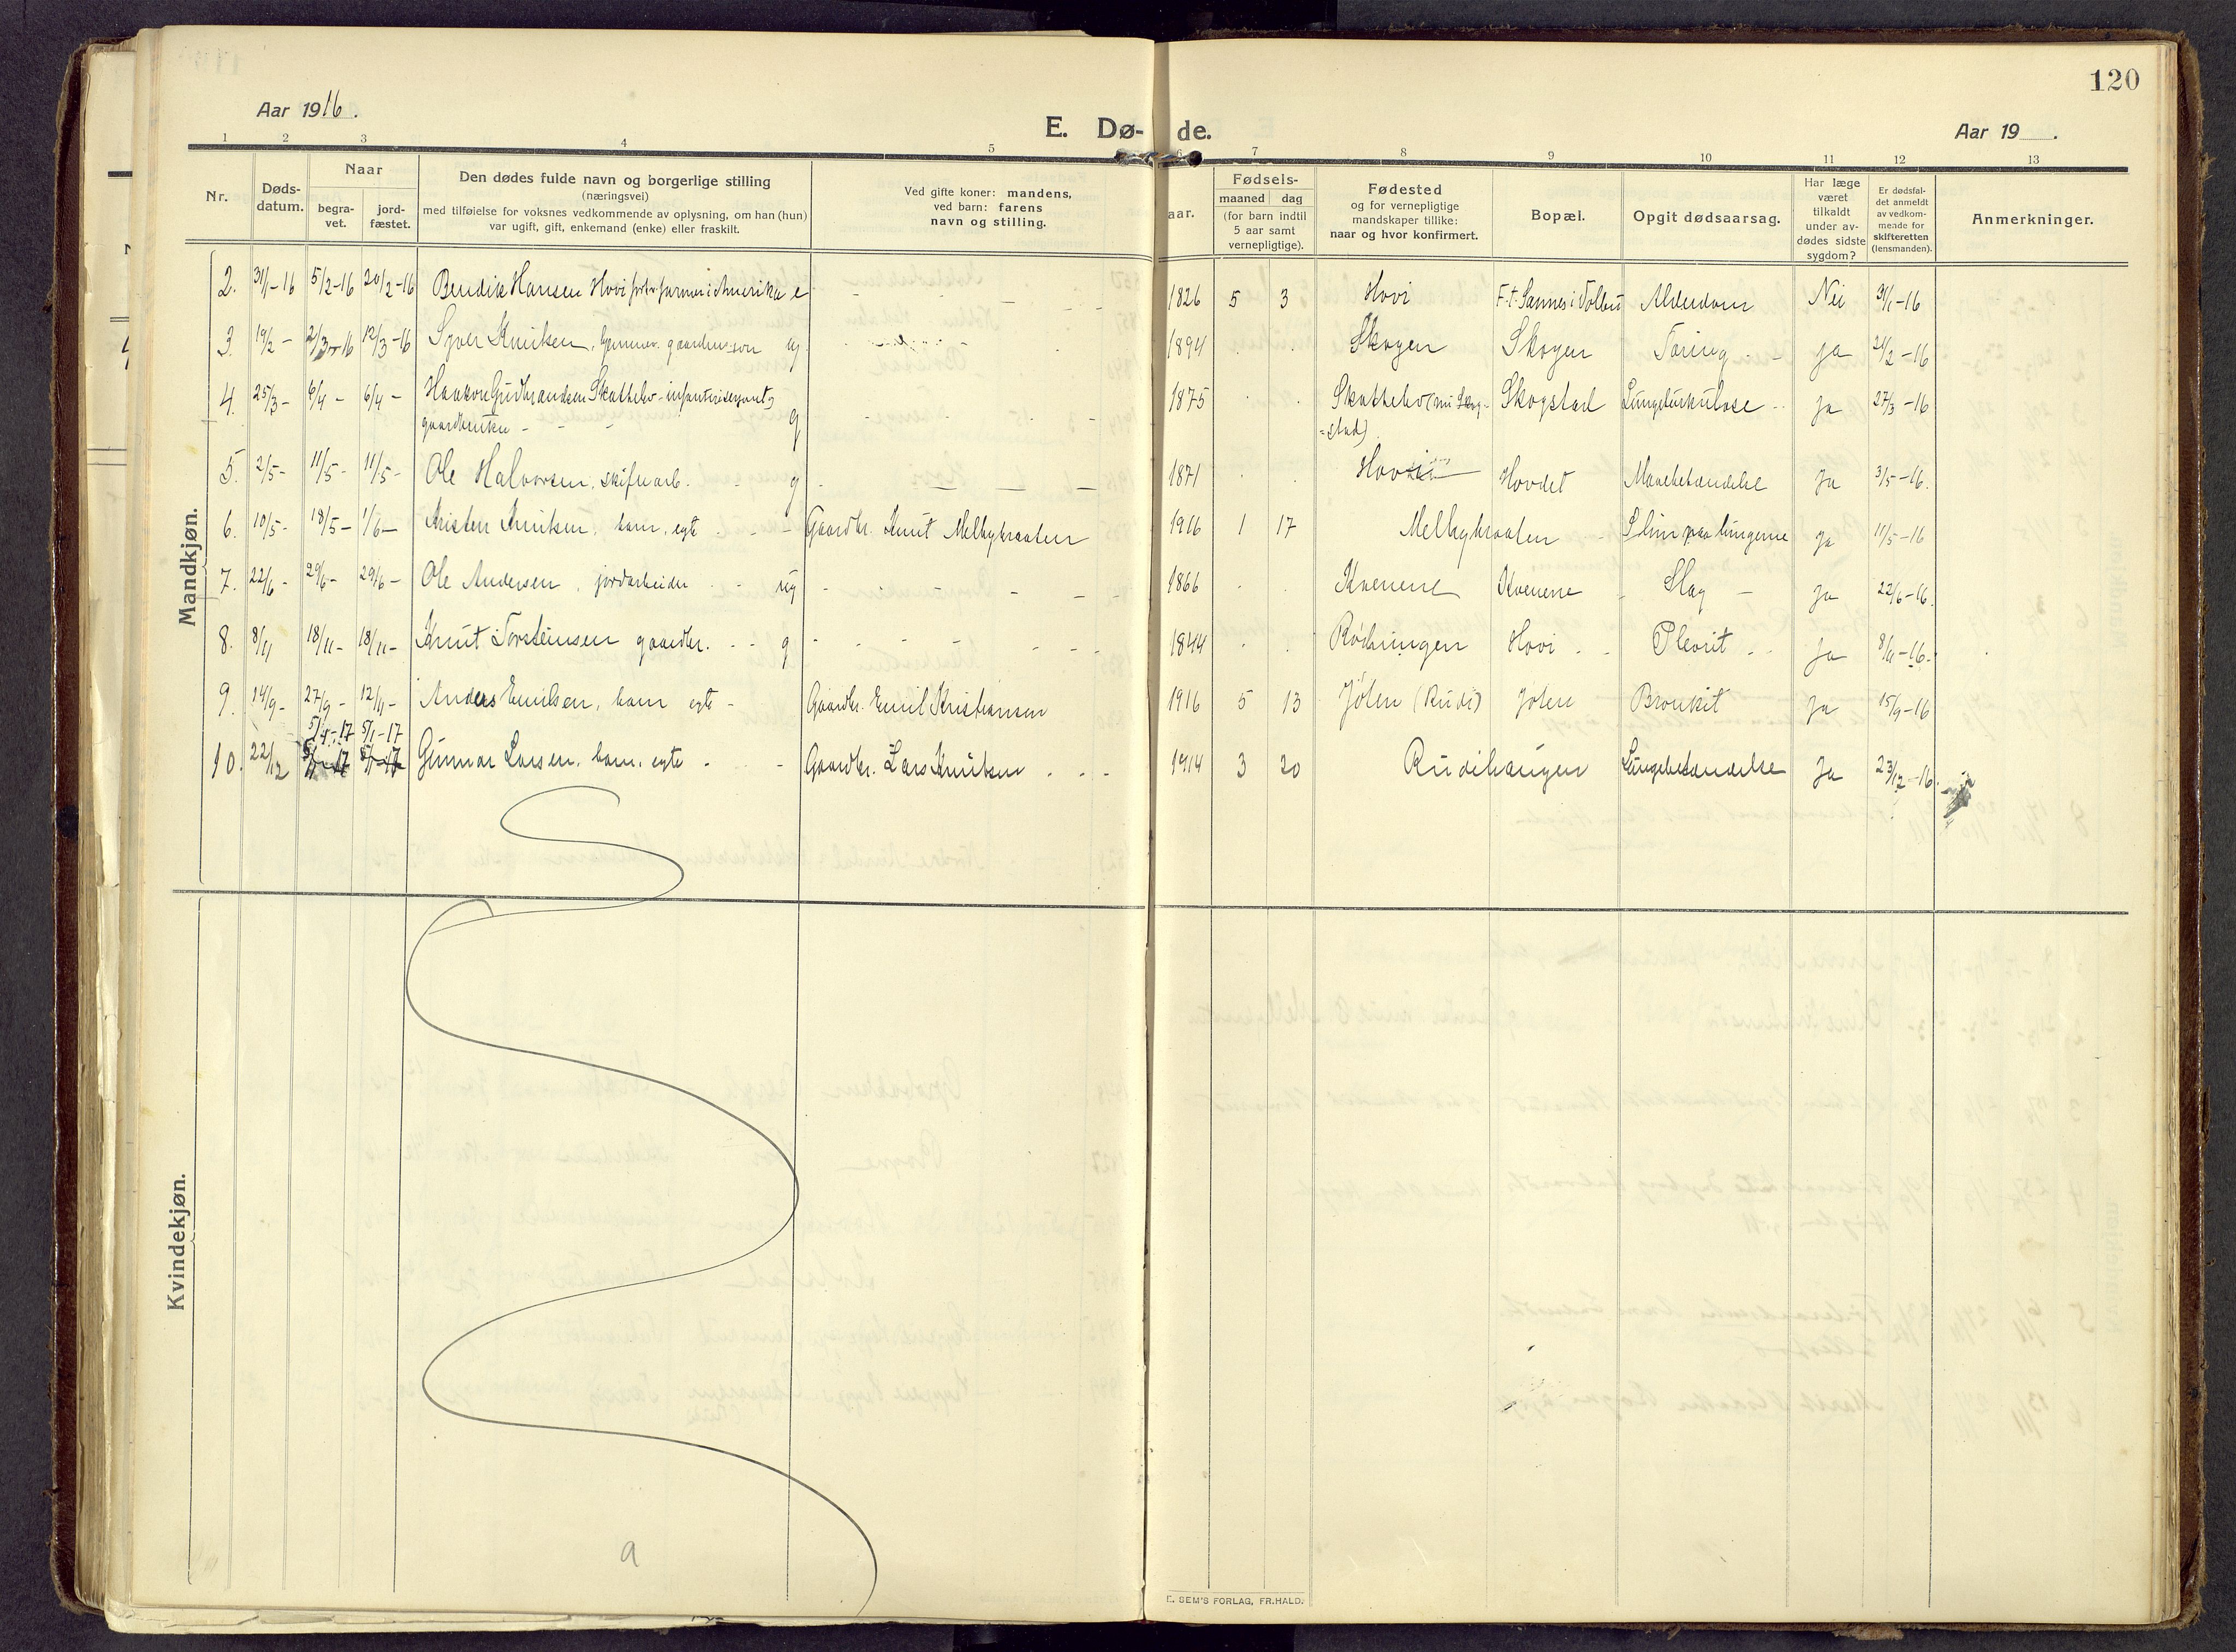 120
Aar 1916.
E. Dø-
de.
Aar 19 .
1 2 3 4 5 6 7 8 9 10 11 12 13
Nr.
Døds-
datum.
Naar
begra-
vet.
jord-
fæstet.
Den dødes fulde navn og borgerlige stilling
(næringsvei)
med tilføielse for voksnes vedkommende av oplysning, om han (hun)
var ugift, gift, enkemand (enke) eller fraskilt.
Ved gifte koner: mandens,
ved barn: farens
navn og stilling.
aar.
Fødsels-
maaned dag
(for barn indtil
5 aar samt
vernepligtige).
Fødested
og for vernepligtige
mandskaper tillike:
naar og hvor konfirmert.
Bopæl.
Opgit dødsaarsag.
Har læge
været
tilkaldt
under av-
dødes sidste
sygdom?
Er dødsfal-
det anmeldt
av vedkom-
mende for
skifteretten
(lensmanden).
Anmerkninger.
Mandkjøn.
2. 31/1-16 5/2-16 20/2-16 Bendik Hansen Hovi farmer i Amerika e 1826 5 3 Hovi F.t. Sannes i Volbu Alderdom Nei 31/1-16
3. 19/2 - 2/3-16 12/3-16 Syver Knutsen, gaardm. søn ug 1894 Skogen Skogen Tæring - ja 24/2-16
4. 25/3- 6/4 - 6/4 - Haakon Gudbrandsen Skattebo - infanterisergent &
gaardbruker - g 1875 Skattebo (nu Skog-
-stad) Skogstad Lungetuberkulose ja 27/3-16
5. 2/5- 11/5- 11/5- Ole Halvorsen, skiferarb. g 1871 Hovi Hovdet Mavebetændelse Ja 3/5-16.
6. 10/5- 18/5- 1/6- Kristen Knutsen, barn, egte - Gaardbr. Knut Melbybraaten 1916 1 17 Melbybraaten Slim paa lungerne Ja 11/5-16
7. 22/6- 29/6- 29/6- Ole Andersen, jordarbeider ug 1866 Kvenene Kvenene Slag - Ja 22/6-16.
8. 8/11 18/11- 18/11- Knut Torsteinsen gaardbr. g 1844 Rødningen Hovi Plevrit Ja 8/11-16.
9. 14/9- 27/9- 12/11- Anders Emilsen, barn egte - Gaardbr. Emil Kristiansen 1916 5 13 Jølen (Rudi) Jølen Bronkit Ja 15/9-16
5/1-17 5/1-17
10. 22/12 Gunnar Larsen, barn, egte - Gaardbr. Lars Knutsen 1914 3 20 Rudihaugen Lungebetændelse Ja 23/12-16.
Kvindekjøn.
a
E. SEM'S FORLAG, FR.HALD.